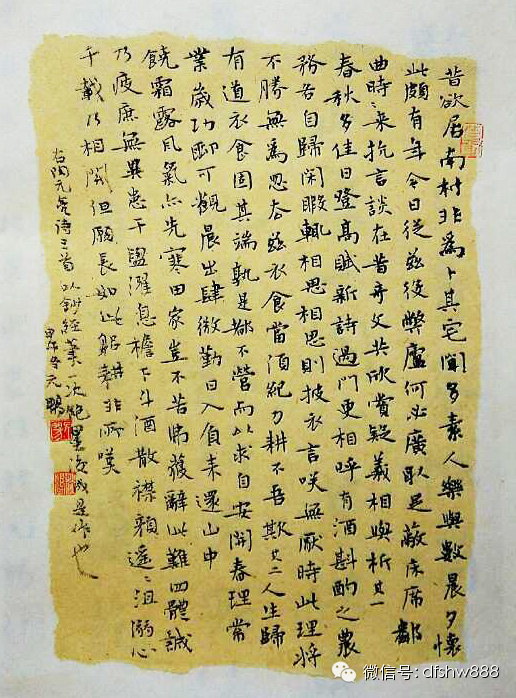 昔欲居南村非為卜其宅聞多素人樂與數晨夕懷
此頗有年今日從茲役弊廬何必廣取足蔽床席鄰
曲時〻来抗言談在昔奇文共欣賞疑義相與析其一
春秋多佳日登高賦新詩過門更相呼有酒斟酌之農
務各自歸閑暇輒相思相思則披衣言咲無厭時此理將
不勝無為忽去茲衣食當須紀力耕不吾欺其二人生歸
有道衣食固其端孰是都不營而以求自安開春理常
業歲功聊可觀晨出肆微勤日入負耒還山中
饒霜露風氣亦先寒田家豈不苦弗獲辭此難四體誠
乃疲庶無異患干盥濯息檐下斗酒散襟顏遥〻沮溺心
千載乃相關但願長如此躬耕非所嘆
右陶元亮詩三首以鈔經筆一次飽墨後成是作也
元鵬
微信号: dfshw888